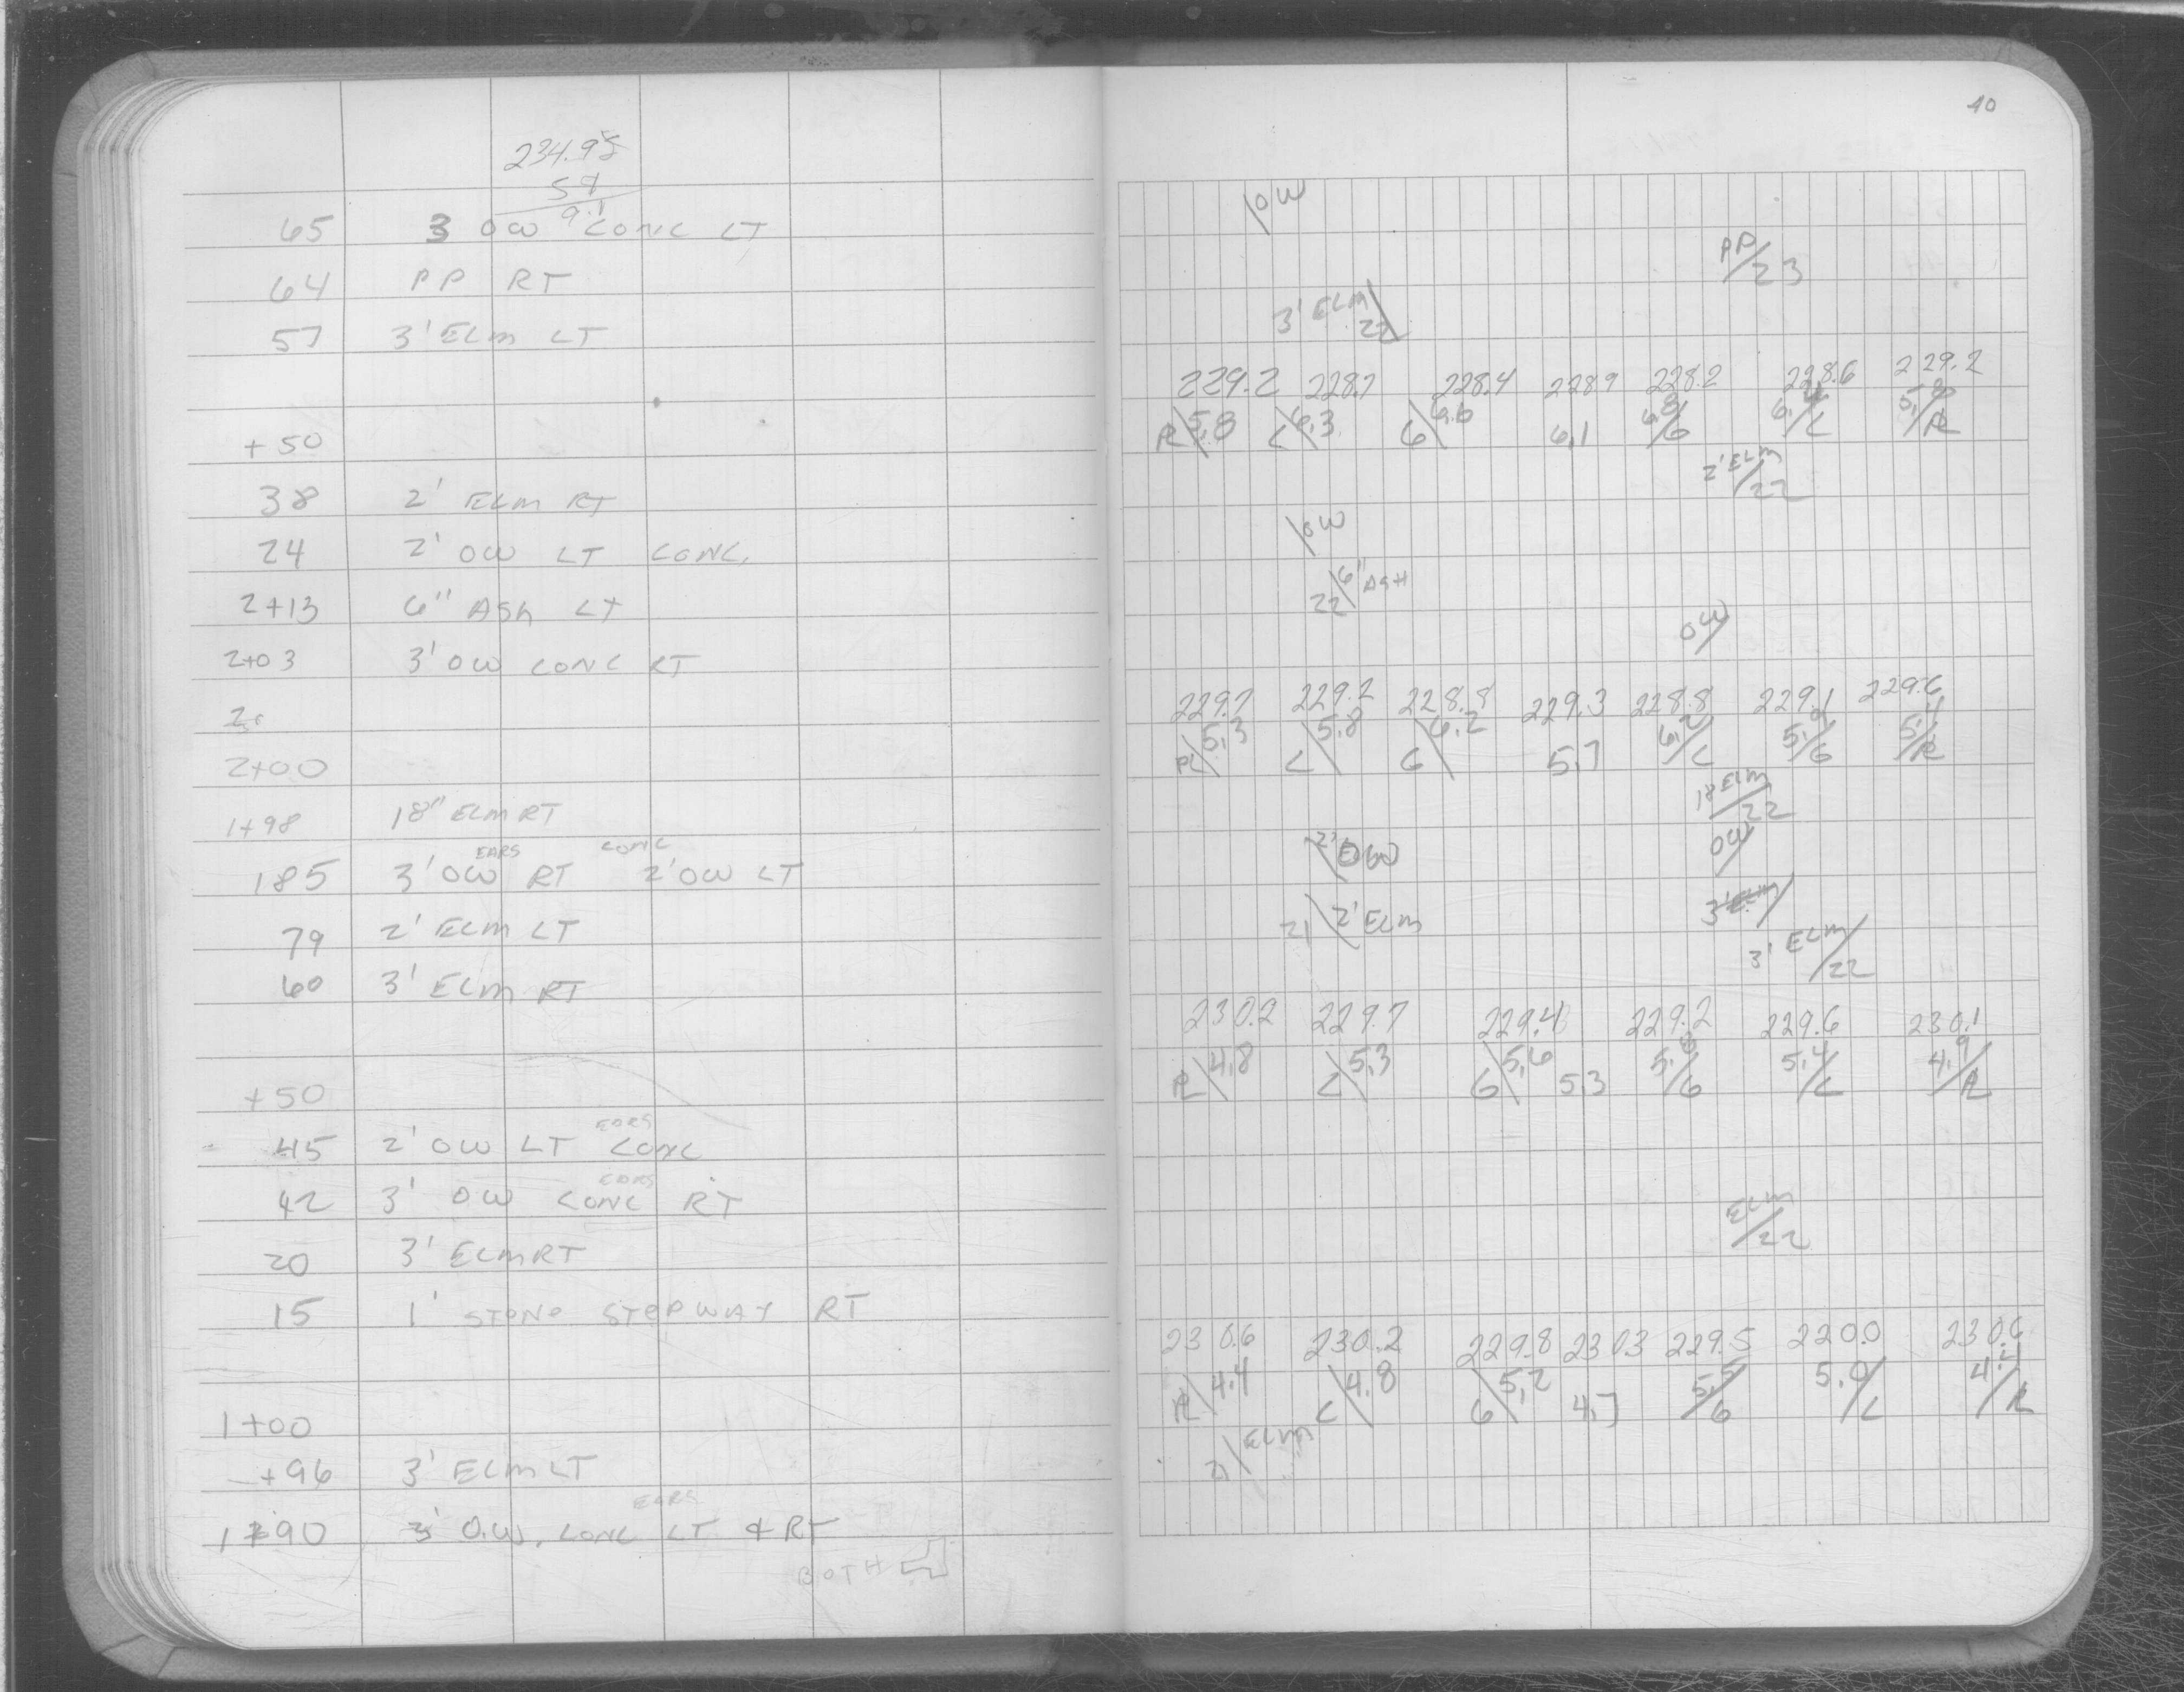 40
234.98
5 9
9.1
65 3 OW CONC LT
64 PP RT
57 3' ELM LT
+50
38 2' ELM RT
24 2' OW LT CONC.
2+13 6" ASh LT
2+03 3' OW CONC RT
2+00
1+98 18" ELM RT
EARS CONC
185 3' OW RT 2' OW LT
79 2' ELM LT
60 3' ELM RT
+50
EARS
45 2' OW LT CONC
EARS
42 3' OW CONC RT
20 3' ELM RT
15 1' STONE STEPWAY RT
1+00
+96 3' ELM LT
EARS
1+90 3' O.W. CONC LT & RT
BOTH
OW
PP/23
3' ELM 22
229.2 228.7 228.4 228.9 228.2 228.6 229.2
R\5.8 C\6.3 G\6.6 6.1 6.8/G 6.4/C 5.8/R
2' ELM/22
\OW
22\6" ASH
OW/
229.7 229.2 228.8 229.3 228.8 229.1 229.6
R\5.3 C\5.8 G\6.2 5.7 6.2/C 5.9/G 5.4/R
18 ELM/22
2' OW OW/
21\2' ELM
3' ELM/22
230.2 229.7 229.4 229.2 229.6 230.1
R\4.8 C\5.3 G\5.6 5.3 5.8/G 5.4/C 4.9/R
ELM/22
230.6 230.2 229.8 230.3 229.5 220.0 230.6
R\4.4 C\4.8 G\5.2 4.7 5.5/G 5.0/C 4.4/R
21\ELM